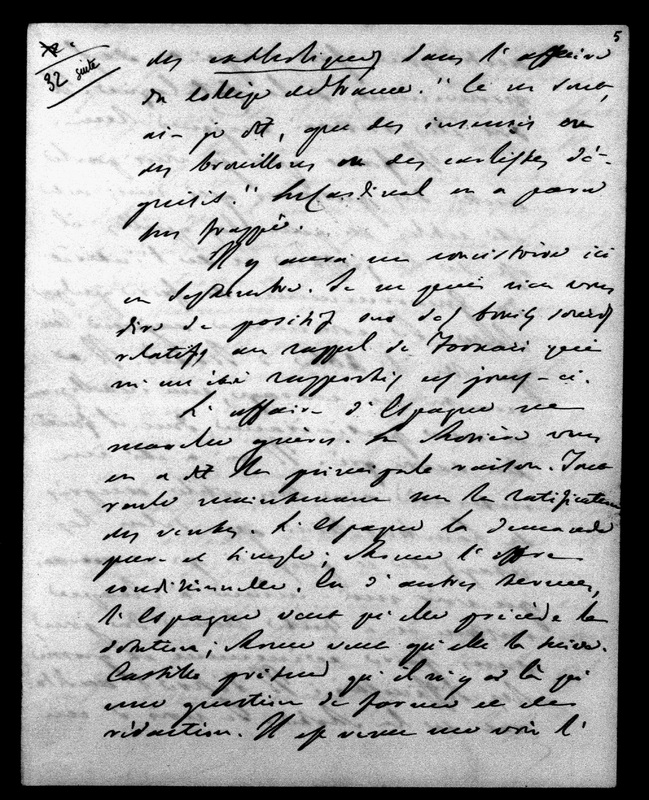 5
32 suite
des catholiques dans l'affaire
du Collège de France. "Ce ne sont,
ai-je dit, que des insensés ou
des brouillons ou des carlistes dé-
guisés." Le Cardinal en a paru
très frappé.
Il y aura un consistoire ici
en Septembre. Je ne puis rien vous
dire de positif sur des bruits sourds
relatifs au rappel de Fornari qui
m'ont été rapportés ces jours-ci.
L'affaire d'Espagne ne
marche guères. La Rosière vous
en a dit la principale raison. Tout
roule maintenant sur la ratification
des ventes. L'Espagne la demande
pure et simple; Rome l'offre
conditionnelle. En d'autres termes,
l'Espagne veut qu'elle précède la
dotation; Rome veut qu'elle la suive.
Castillo prétend qu'il n'y a là qu'
une question de forme et de
rédaction. Il est venu me voir l'